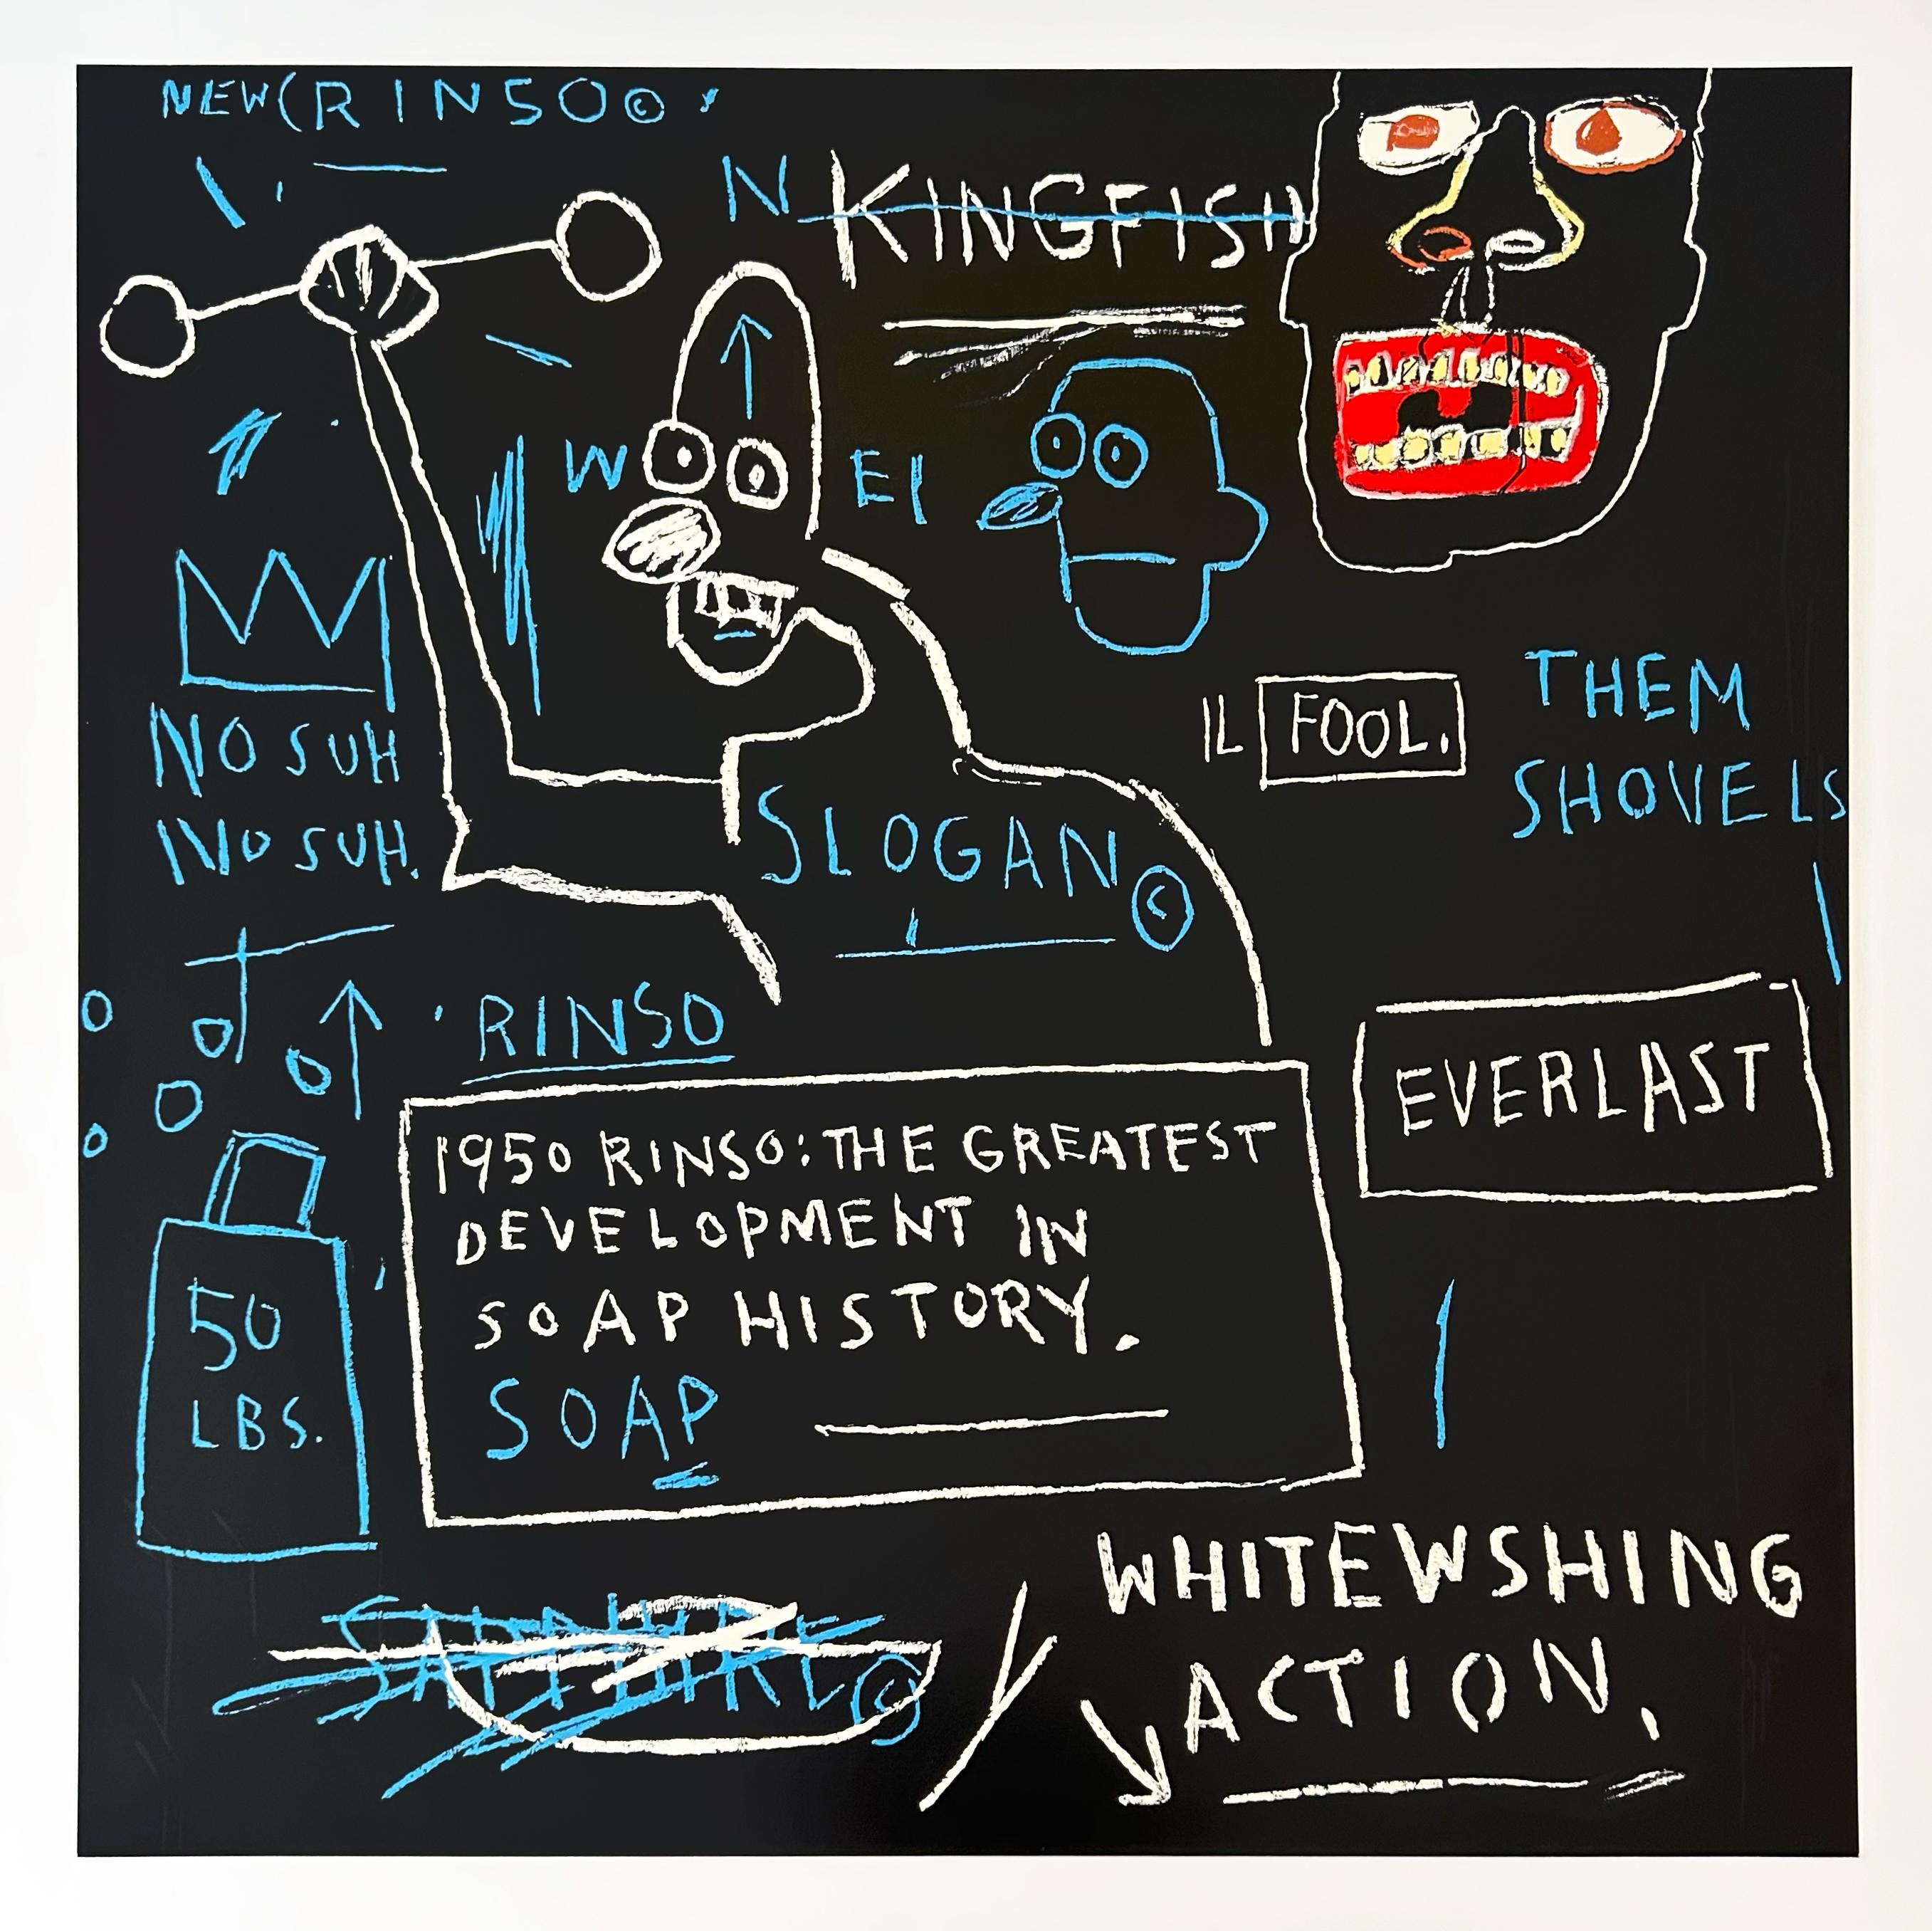 NEW(RINSO©
N KINGFISH
W EI
NO SUH
NO SUH.
IL FOOL.
THEM
SHOVELS
SLOGAN©
RINSO
EVERLAST
1950 RINSO: THE GREATEST
DEVELOPMENT IN
SOAP HISTORY.
SOAP
50
LBS.
SAPPHIRE©
WHITEWSHING
ACTION.